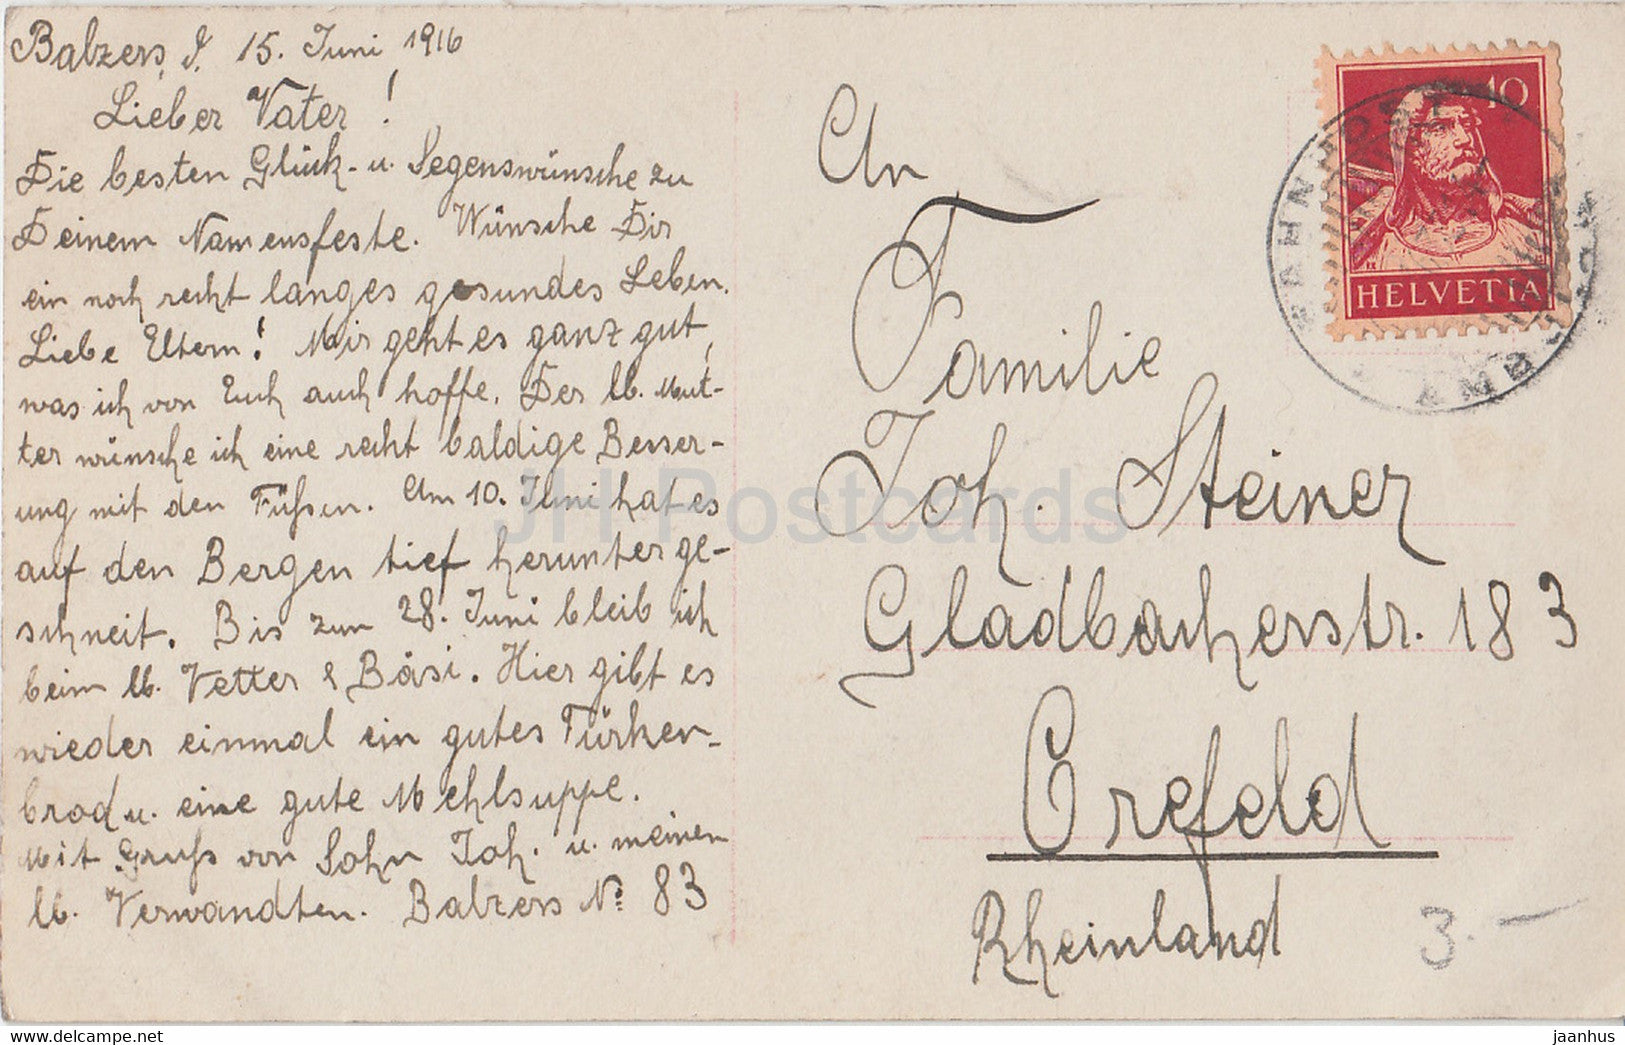 Balzers, d. 15. Juni 1916
Lieber Vater!
Die besten Glück- u. Segenswünsche zu
Deinem Namensfeste. Wünsche Dir
ein noch recht langes gesundes Leben.
Liebe Eltern! Mir geht es ganz gut,
was ich von Euch auch hoffe. Der lb. Mut-
ter wünsche ich eine recht baldige Besser-
ung mit den Füßen. Am 10. Juni hat es
auf den Bergen tief herunter ge-
schneit. Bis zum 28. Juni bleib ich
beim lb. Vetter & Bäsi. Hier gibt es
wieder einmal ein gutes Türken-
brod u. eine gute Mehlsuppe.
Mit Gruß von Sohn Joh. u. meinen
lb. Verwandten. Balzers No 83
An
Familie
Joh. Steiner
Gladbacherstr. 183
Crefeld
Rheinland
3.-
10
HELVETIA
BAHNPOST
AMBULANT
JH Postcards
www.hippostcard.com/store/jhpostcards
jaanhus